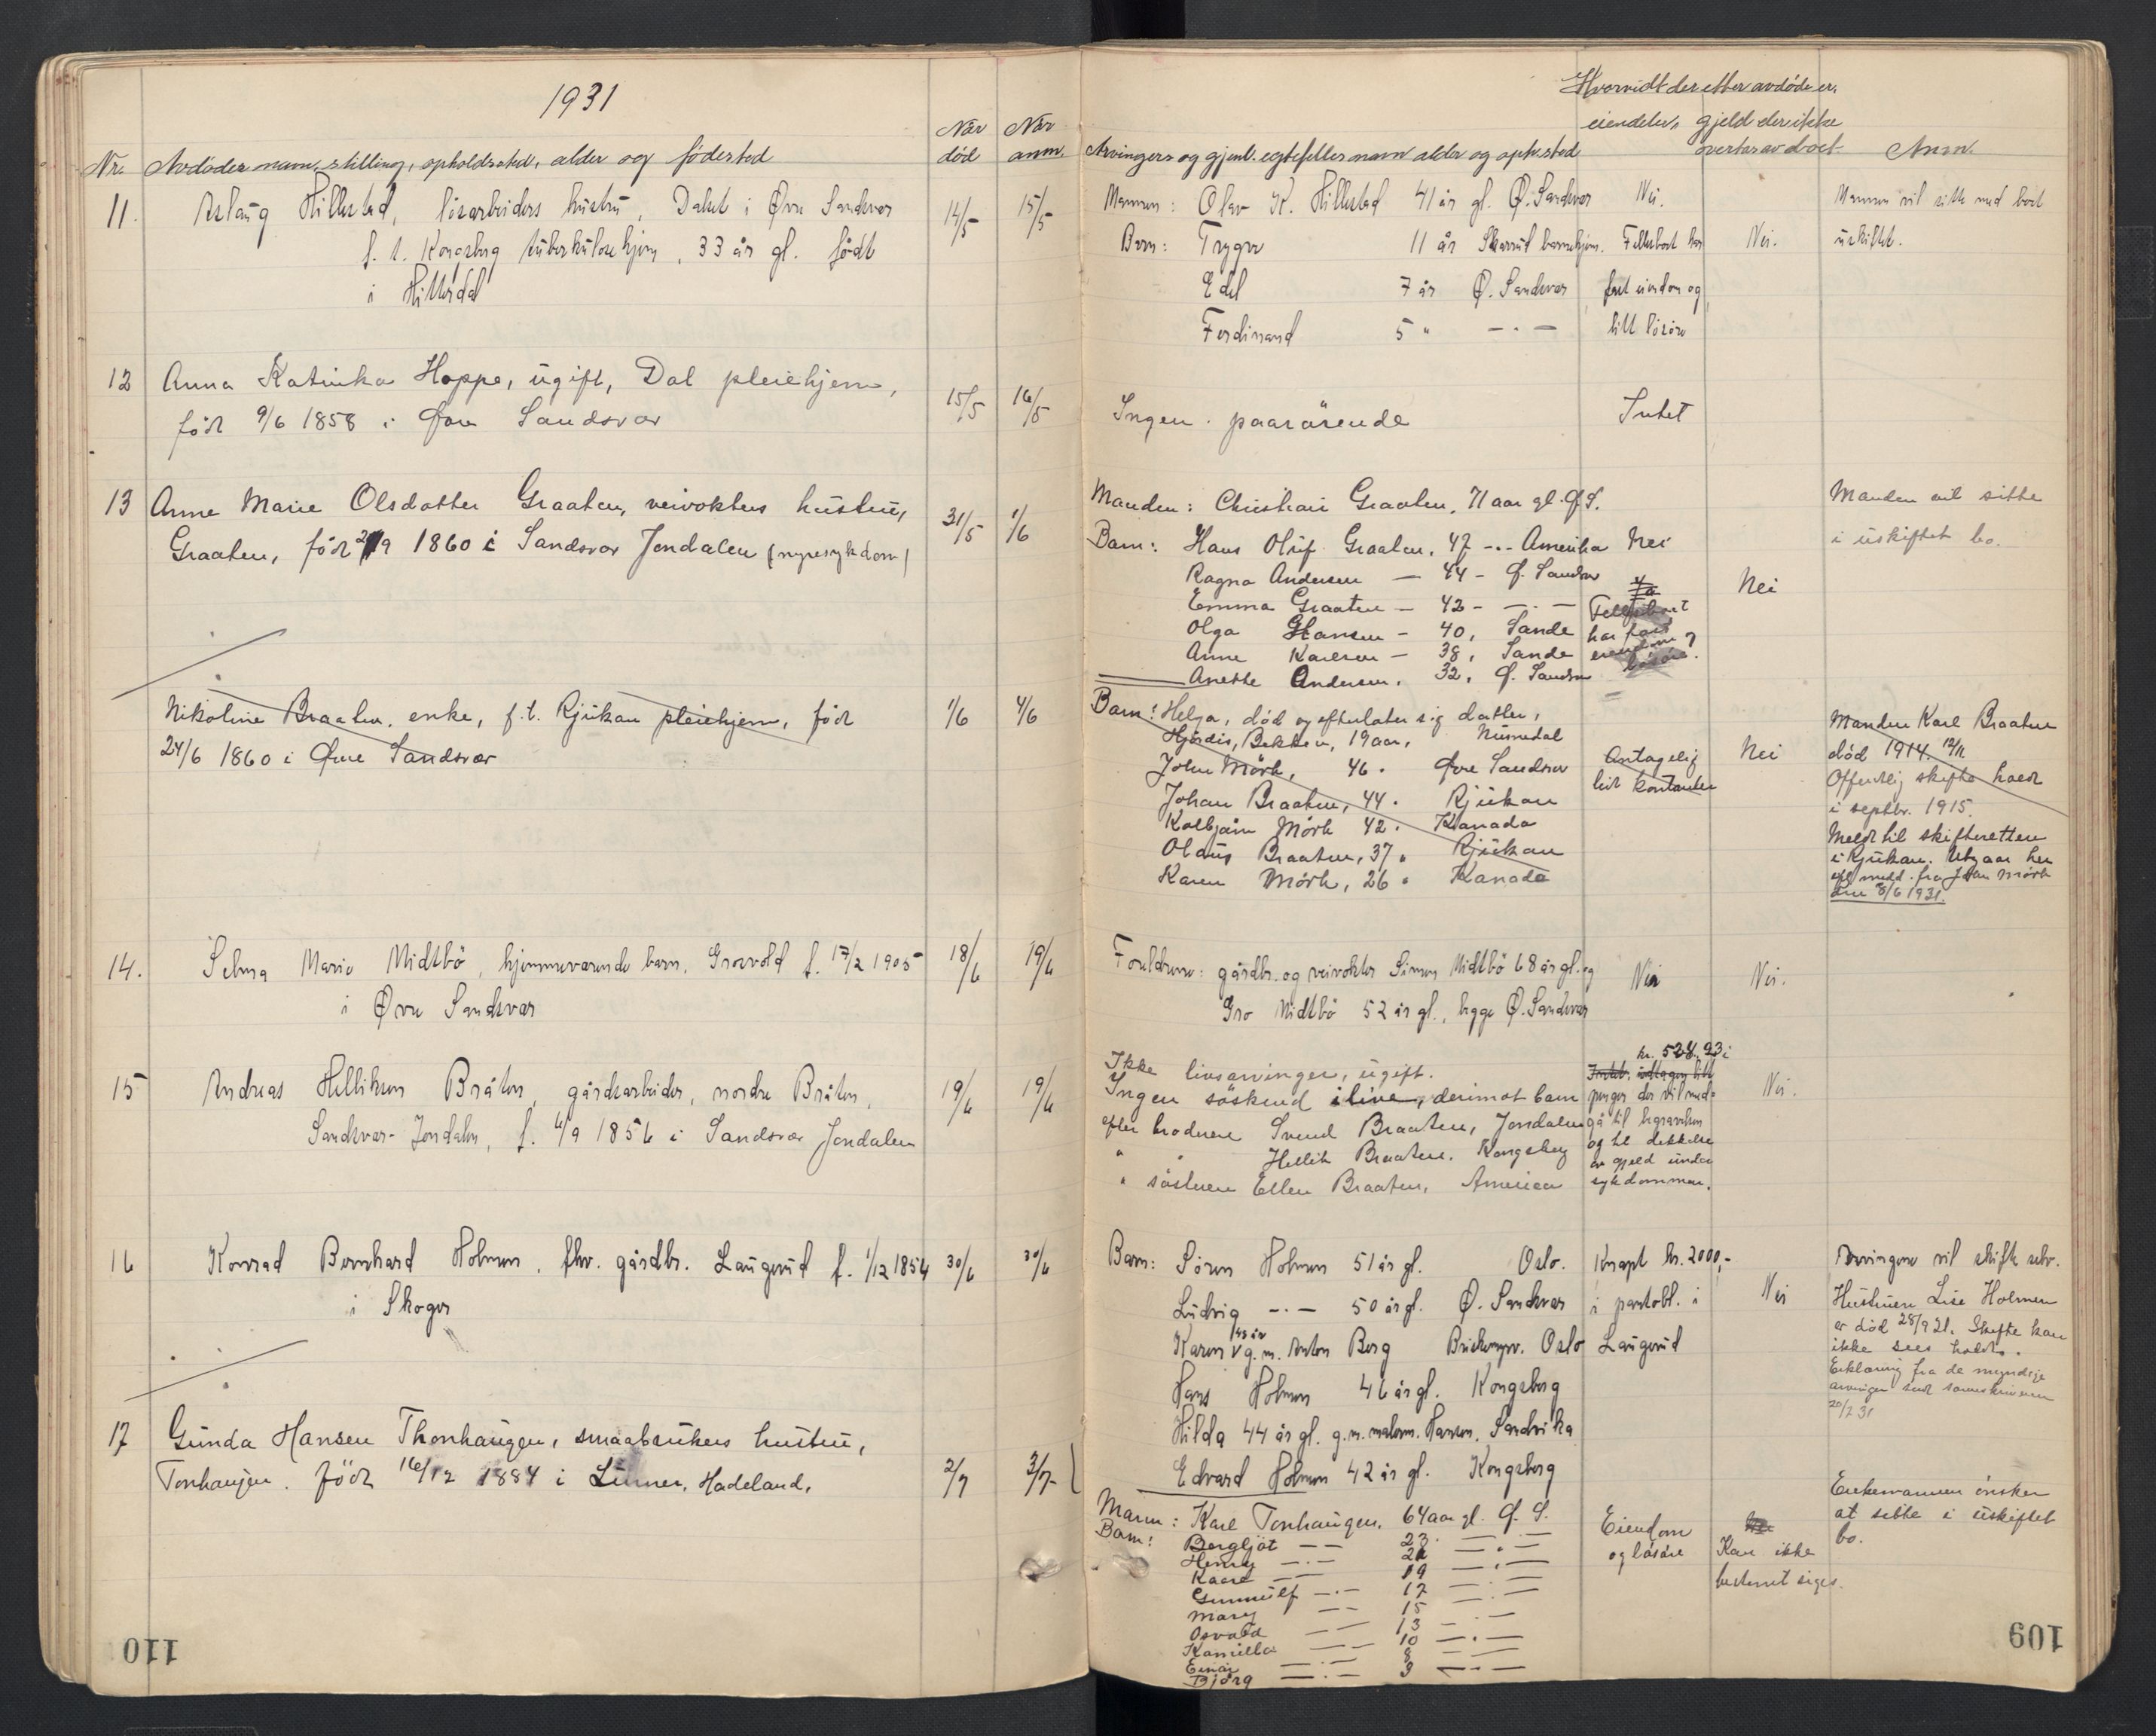 1931
Nr. Avdødes navn, stilling, opholdssted, alder og fødested
Når død
Når anm.
Arvingers og gjenl. egtefelles navn alder og oph.sted
Hvorvidt der etter avdøde er
eiendeler, gjeld der ikke
overtas av boet.
Anm.
11. Aslaug Hillestad, løsarbeiders hustru, Dalset i Øvre Sandsvær
f. t. Kongsberg tuberkulosehjem, 33 år gl. født
i Hitterdal
14/5
15/5
Mannen: Olav K. Hillestad 41 år gl. Ø. Sandsvær
Barn: Trygve 11 år Skarrud barnehjem.
Edel 7 år Ø. Sandsvær
Ferdinand 5 " — . —
Nei.
Fellesboet har
fast eiendom og
litt løsøre
Nei.
Mannen vil sitte med boet
uskiftet.
12 Anna Katinka Hoppe, ugift, Dal pleiehjem,
født 9/6 1858 i Øvre Sandsvær
15/5
16/5
Ingen paarørende
Intet
13 Anne Marie Olsdatter Graaten, veivokters hustru,
Graaten, født 9 1860 i Sandsvær Jondalen (nyresykdom)
31/5
1/6
Manden: Christian Graaten, 71 aar gl. Ø. S.
Barn: Hans Oluf Graaten, 47 -.- Amerika
Ragna Andersen — 44 - Ø. Sandsv
Emma Graaten — 42 - — . —
Olga Hansen - 40, Sande
Anne Karlsen — 38, Sande
Anette Andersen, 32, Ø. Sandsv
Nei
Ja
Fellesboet
har fast
eiendom og
løsøre.
Nei
Manden vil sitte
i uskiftet bo.
Nikoline Braaten, enke, f.t. Rjukan pleiehjem, født
24/6 1860 i Øvre Sandsvær
1/6
4/6
Barn: Helga, død og efterlater sig datter,
Hjørdis, Bekken, 19 aar, Numedal
John Mørk, 46 . Øvre Sandsvær
Johan Braaten, 44 . Rjukan
Kolbjørn Mørk 42 . Kanada
Olaus Braaten, 37 " Rjukan
Karen Mørk, 26 " Kanada
Antagelig
litt kontanter
Nei
Manden Karl Braaten
død 1914. 12/11
Offentlig skifte holdt
i septbr. 1915.
Meldt til skifteretten
i Rjukan. Utgaar her
efter medd. fra John Mørk
den 8/6 1931.
14. Selma Marie Midtbø, hjemmeværende barn, Grosvold f. 17/2 1905
i Øvre Sandsvær
18/6
19/6
Foreldrene: gårdbr. og veivokter Simen Midtbø 68 år gl. og
Gro Midtbø 52 år gl., begge Ø. Sandsvær
Nei
Nei.
15 Andreas Helliksen Bråten, gårdsarbeider, nordre Bråten,
Sandsvær-Jondalen, f. 4/9 1856 i Sandsvær Jondalen
19/6
19/6
Ikke livsarvinger, ugift.
Ingen søskend ilive, derimot barn
efter broderen Svend Braaten, Jondalen
" " Hellik Braaten. Kongsberg
" søsteren Ellen Braaten, America
kr. 528.93 i
Intet. antagen litt
penger der vil med-
gå til begravelsen
og til dekkelse
av gjeld under
sykdommen.
Nei.
16 Konrad Bernhard Holmen, fhv. gårdbr. Laugerud f. 1/12 1854
i Skoger
30/6
30/6
Barn: Søren Holmen 51 år gl. Oslo.
Ludvig -.- 50 år gl. Ø. Sandsvær
Karen 48 år g.m. Anton Berg Oslo
Hans Holmen 46 år gl. Kongsberg
Hilda 44 år gl. g.m. malerm. Hansen, Sandvika
Edvard Holmen 42 år gl. Kongsberg
Knapt kr. 2000,-
i pantobl. i
Laugerud
Nei
Arvingene vil skifte selv.
Hustruen Lise Holmen
er død 28/9 21. Skifte kan
ikke sees holdt.
Erklæring fra de myndige
arvinger sendt sorenskriveren
20/7 31
17 Gunda Hansen Thonhaugen, smaabrukers hustru,
Tonhaugen. født 16/12 1884 i Lunner, Hadeland,
2/7
3/7
Mann: Karl Tonhaugen, 64 aar gl. Ø. S.
Barn: Bergljot — — 23 — . —
Henry — . — 21 — . —
Kaare — — 19 — . —
Gunnulf — . — 17 — . —
Mary — — 15 — . —
Osvald — — 13 — . —
Kamilla — — 10 — . —
Einar — . — 8 — . —
Bjørg — . — 3 — . —
Eiendom
og løsøre
Kan ikke
bestemt siges.
Enkemannen ønsker
at sitte i uskiftet
bo.
110
109